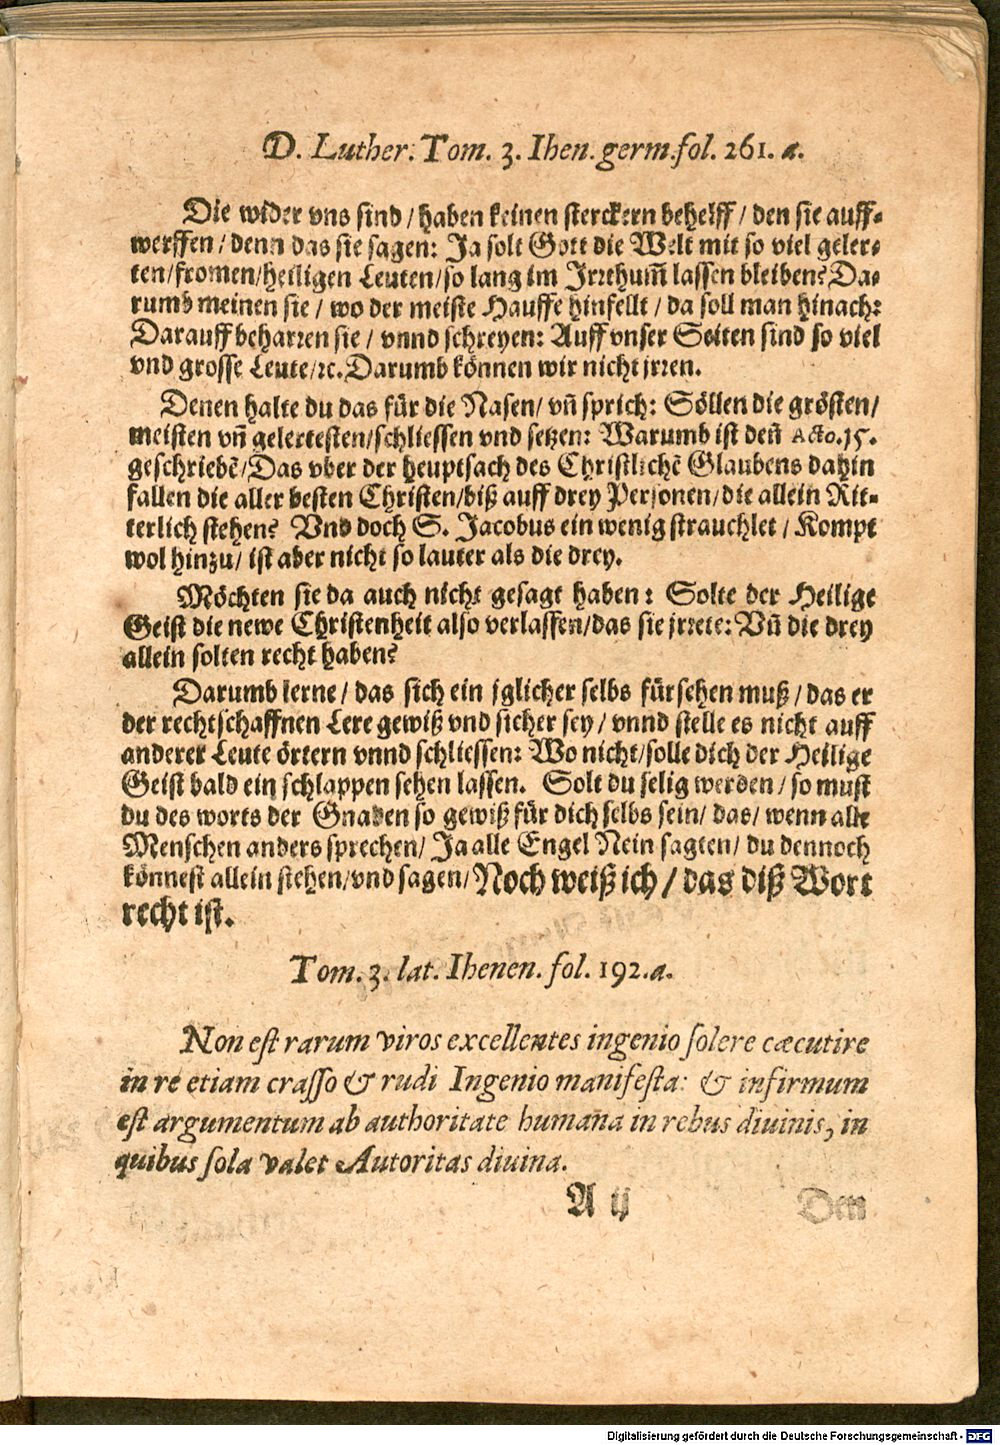 D. Luther. Tom. 3. Ihen. germ. fol. 261. a.
Die wider vns sind / haben keinen sterckern behelff / den sie auff-
werffen / denn das sie sagen: Ja solt Gott die Welt mit so viel geler-
ten/fromen/heiligen Leuten/so lang im Irrthum̃ lassen bleiben? Da-
rumb meinen sie / wo der meiste Hauffe hinfellt / da soll man hinach:
Darauff beharren sie / vnnd schreyen: Auff vnser Seiten sind so viel
vnd grosse Leute/ꝛc. Darumb können wir nicht jrren.
Denen halte du das für die Nasen/ vñ sprich: Söllen die grösten/
meisten vñ gelertesten/schliessen vnd setzen: Warumb ist deñ Acto. 15.
geschriebẽ/Das vber der heuptsach des Christlichẽ Glaubens dahin
fallen die aller besten Christen/biß auff drey Personen/die allein Rit-
terlich stehen? Vnd doch S. Jacobus ein wenig strauchlet / Kompt
wol hinzu/ ist aber nicht so lauter als die drey.
Möchten sie da auch nicht gesagt haben: Solte der Heilige
Geist die newe Christenheit also verlassen/das sie jrrete: Vñ die drey
allein solten recht haben?
Darumb lerne / das sich ein jglicher selbs fürsehen muß / das er
der rechtschaffnen Lere gewiß vnd sicher sey / vnnd stelle es nicht auff
anderer Leute örtern vnnd schliessen: Wo nicht/solle dich der Heilige
Geist bald ein schlappen sehen lassen. Solt du selig werden / so must
du des worts der Gnaden so gewiß für dich selbs sein/ das/ wenn alle
Menschen anders sprechen/ Ja alle Engel Nein sagten/ du dennoch
könnest allein stehen/vnd sagen/ Noch weiß ich / das diß Wort
recht ist.
Tom. 3. lat. Ihenen. fol. 192. a.
Non est rarum viros excellentes ingenio solere cæcutire
in re etiam crasso & rudi Ingenio manifesta: & infirmum
est argumentum ab authoritate humana in rebus diuinis, in
quibus sola valet Autoritas diuina.
A ij Den
Digitalisierung gefördert durch die Deutsche Forschungsgemeinschaft - DFG